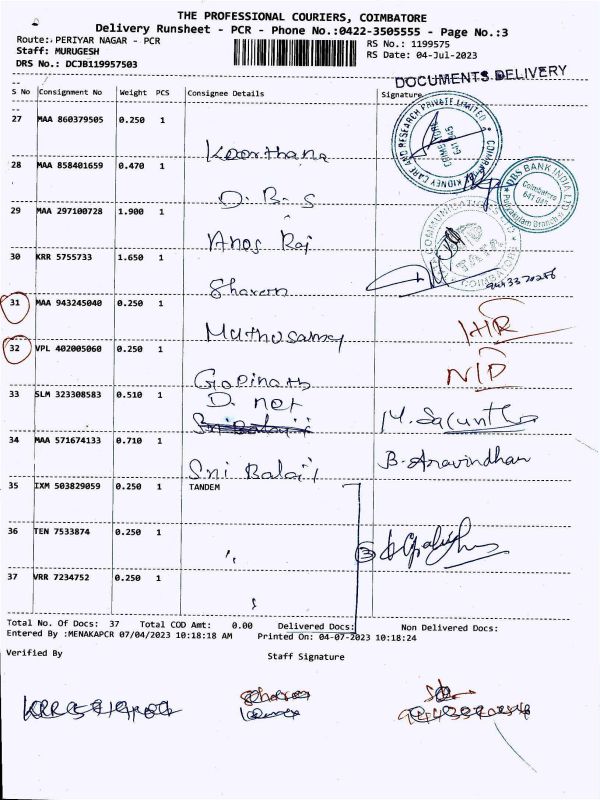 THE PROFESSIONAL COURIERS, COIMBATORE
Delivery Runsheet - PCR - Phone No.:0422-3505555 - Page No.:3
Route:. PERIYAR NAGAR - PCR
RS No.: 1199575
Staff: MURUGESH
RS Date: 04-Jul-2023
DRS No.: DCJB119957503
DOCUMENTS DELIVERY
S No Consignment No Weight PCS Consignee Details Signature
27 MAA 860379505 0.250 1
KIDNEY CARE AND RESEARCH PRIVATE LIMITED
COIMBATORE
641 045
28 MAA 858401659 0.470 1
D.B.S
DBS BANK INDIA LTD
Coimbatore
29 MAA 297100728 1.900 1
Anos Raj
30 KRR 5755733 1.650 1
Sharon
31 MAA 943245040 0.250 1
Muthusamy
IHR
32 VPL 402005060 0.250 1
Gopinath
N/D
33 SLM 323308583 0.510 1
D. net
34 MAA 571674133 0.710 1
Sri Balaji
B. Aravindhan
35 IXM 503829059 0.250 1 TANDEM
36 TEN 7533874 0.250 1
③
37 VRR 7234752 0.250 1
Total No. Of Docs: 37 Total COD Amt: 0.00 Delivered Docs: Non Delivered Docs:
Entered By :MENAKAPCR 07/04/2023 10:18:18 AM Printed On: 04-07-2023 10:18:24
Verified By Staff Signature